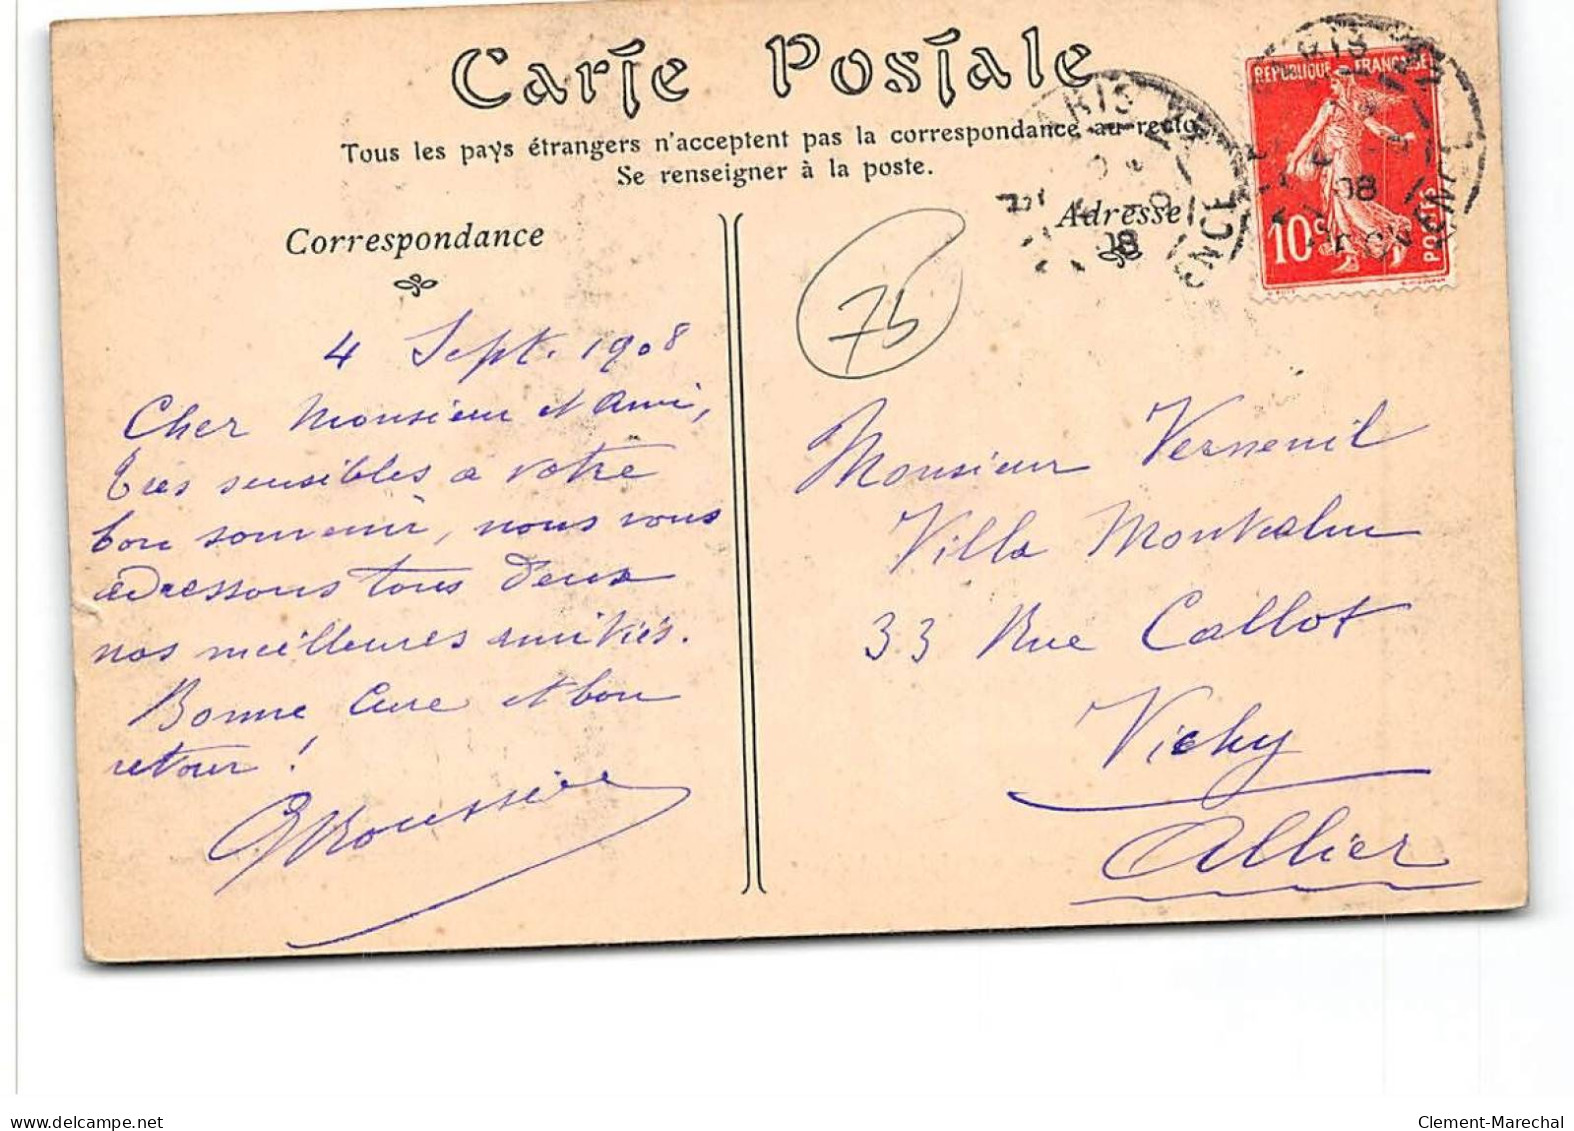 Carte Postale
Tous les pays étrangers n'acceptent pas la correspondance au recto
Se renseigner à la poste.
Correspondance
Adresse
RÉPUBLIQUE FRANÇAISE
10c
POSTES
PARIS
08
75
4 Sept. 1908
Cher Monsieur et Ami,
très sensibles à votre
bon souvenir, nous vous
adressons tous deux
nos meilleures amitiés.
Bonne Cure et bon
retour !
Roussière
Monsieur Verneuil
Villa Montcalm
33 Rue Callot
Vichy
Allier
delcampe.net
Clement-Marechal